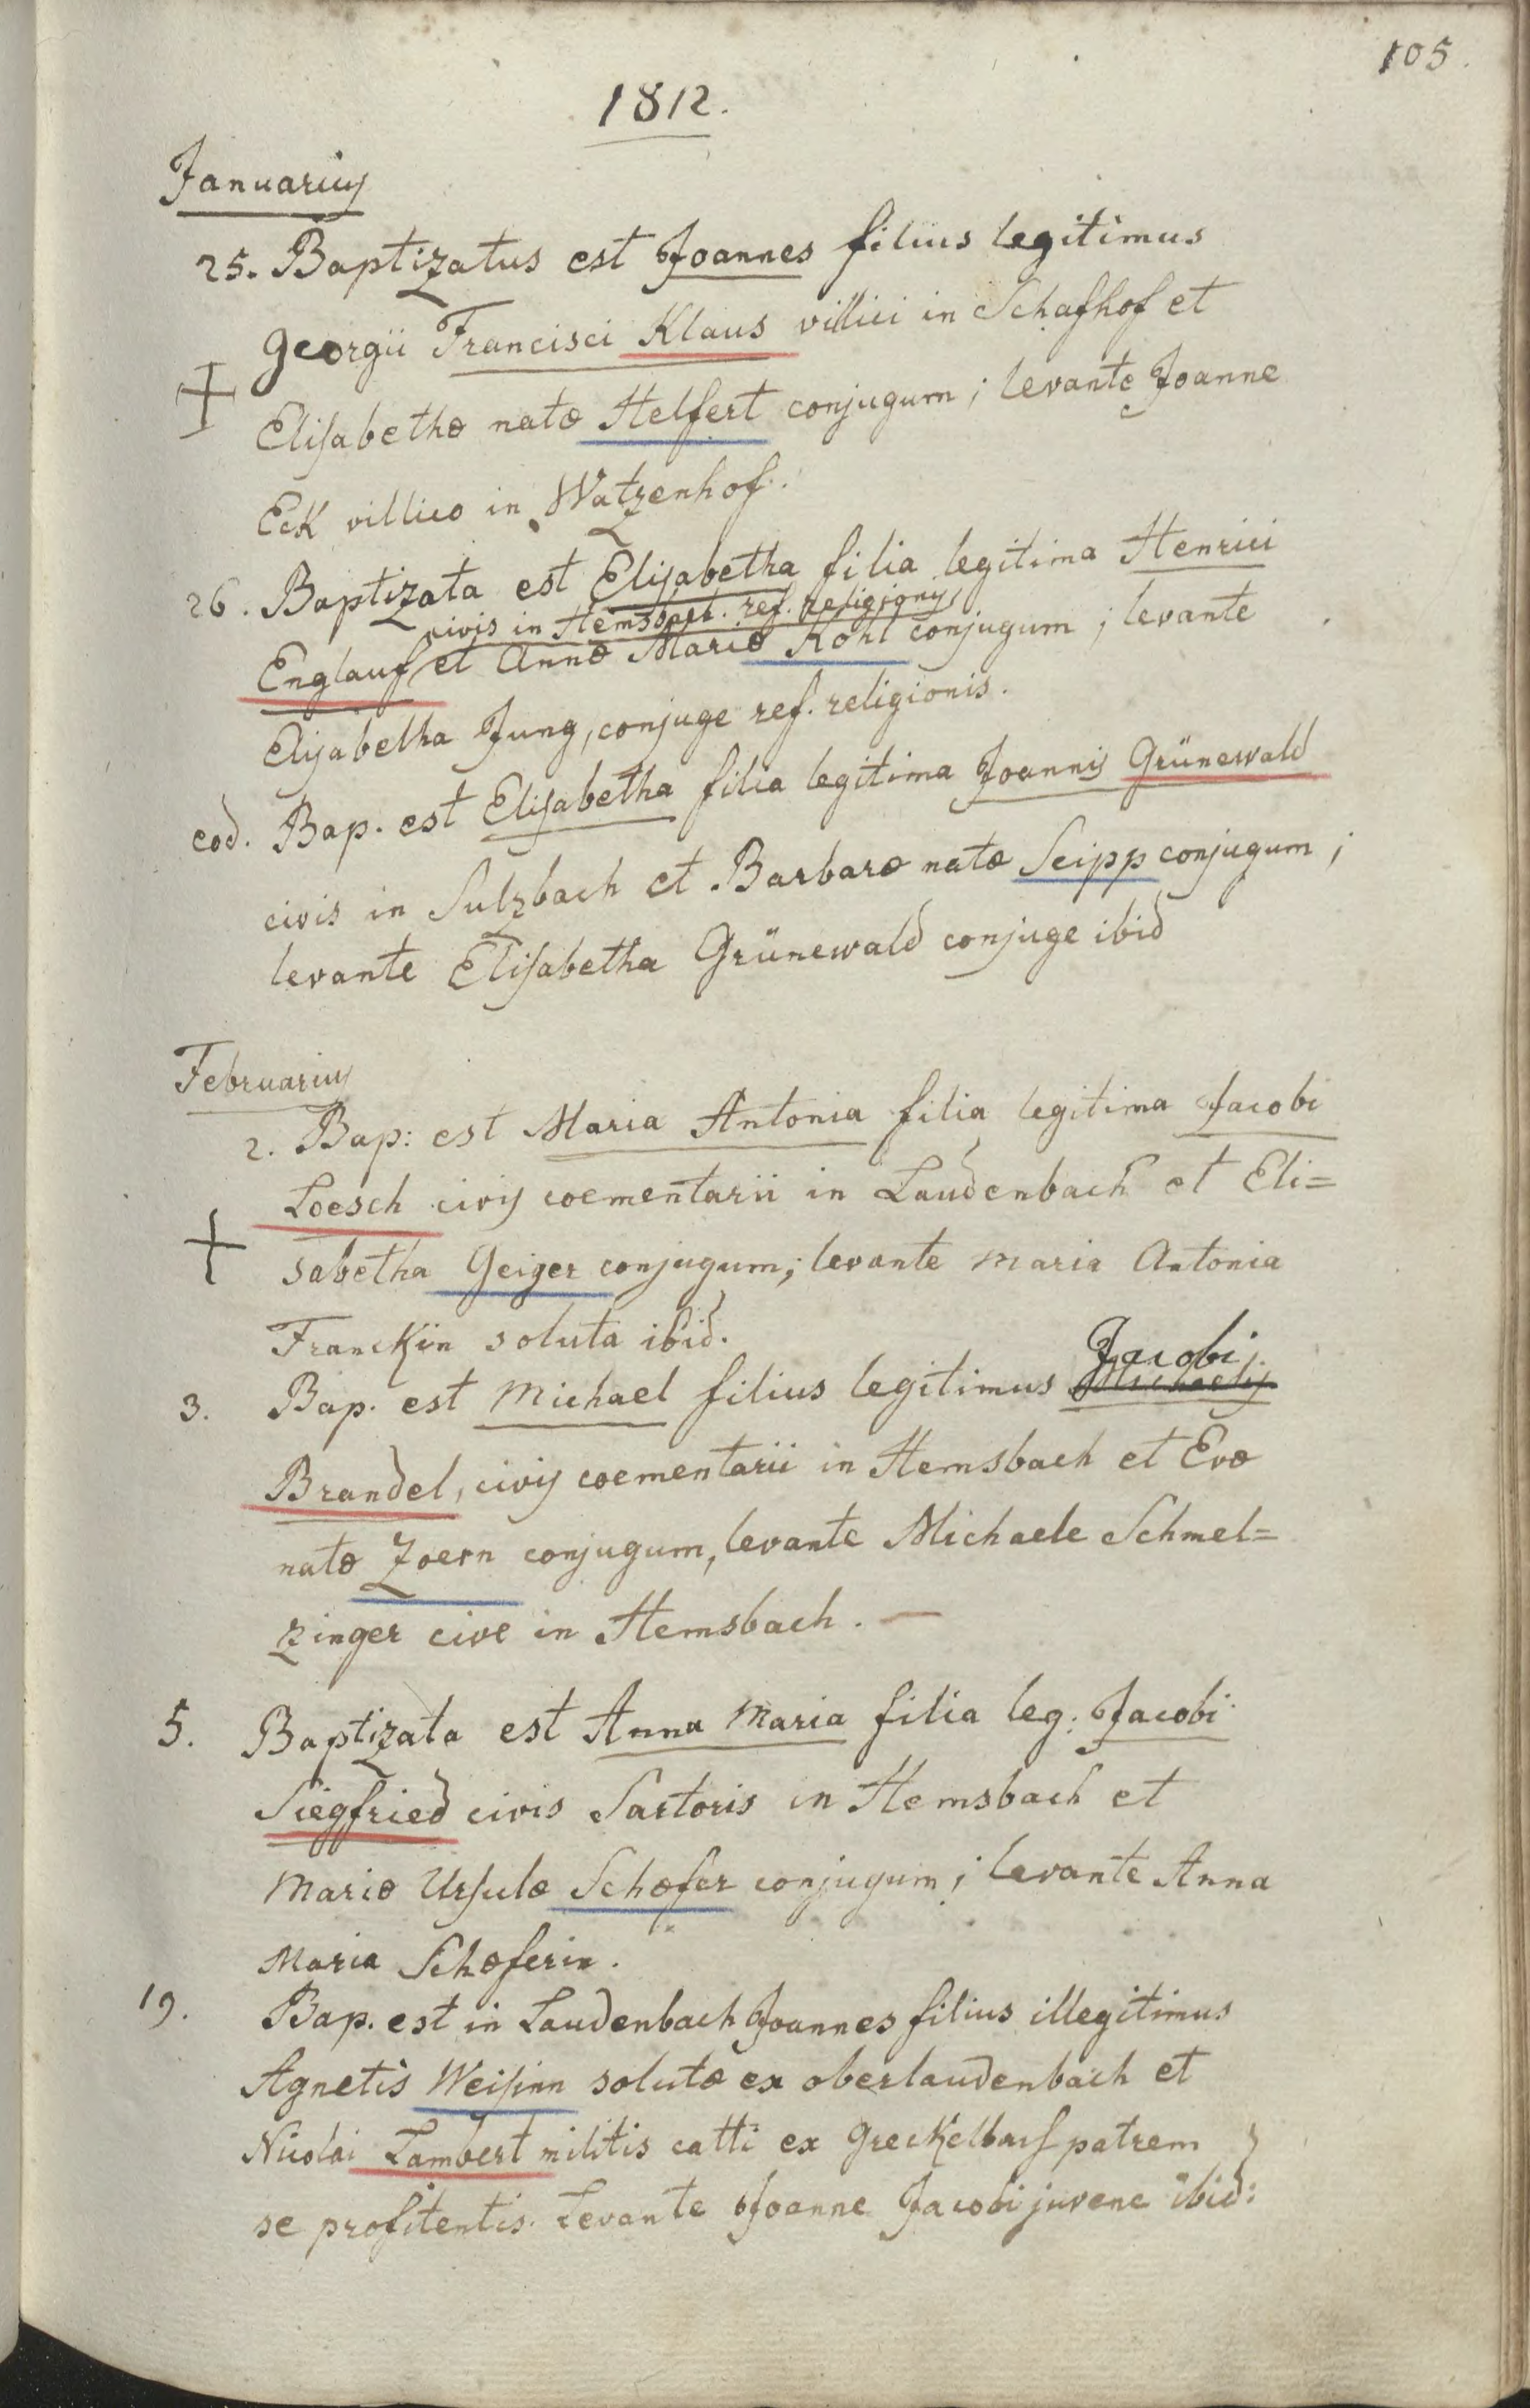 105.
1812.
Januarius
25. Baptizatus est Joannes filius legitimus
Georgii Francisci Klaus villici in Schafhof et
Elisabethæ natæ Helfert conjugum; levante Joanne
Eck villico in Watzenhof.
26. Baptizata est Elisabetha filia legitima Henrici
civis in Hemsbach. ref. religionis
Englauf et Annæ Mariæ Kohl conjugum; levante
Elisabetha Jung, conjuge ref. religionis.
eod. Bap. est Elisabetha filia legitima Joannis Grünewald
civis in Sulzbach et Barbaræ natæ Seipp conjugum;
levante Elisabetha Grünewald conjuge ibid
Februarius
2. Bap: est Maria Antonia filia legitima Jacobi
Loesch civis coementarii in Laudenbach et Eli=
sabetha Geiger conjugum; levante Maria Antonia
Franckin soluta ibid.
Jacobi
3. Bap. est Michael filius legitimus Michaelis
Brandel, civis coementarii in Hemsbach et Evæ
natæ Zoern conjugum, levante Michaele Schmel=
zinger cive in Hemsbach. —
5. Baptizata est Anna Maria filia leg: Jacobi
Siegfried civis Sartoris in Hemsbach et
Mariæ Ursulæ Schæfer conjugum; levante Anna
Maria Schæferin.
19. Bap. est in Laudenbach Joannes filius illegitimus
Agnetis Weisinn solutæ ex oberlaudenbach et
Nicolai Lambert militis catti ex patrem
se profitentis. Levante Joanne Jacobi juvene ibid: